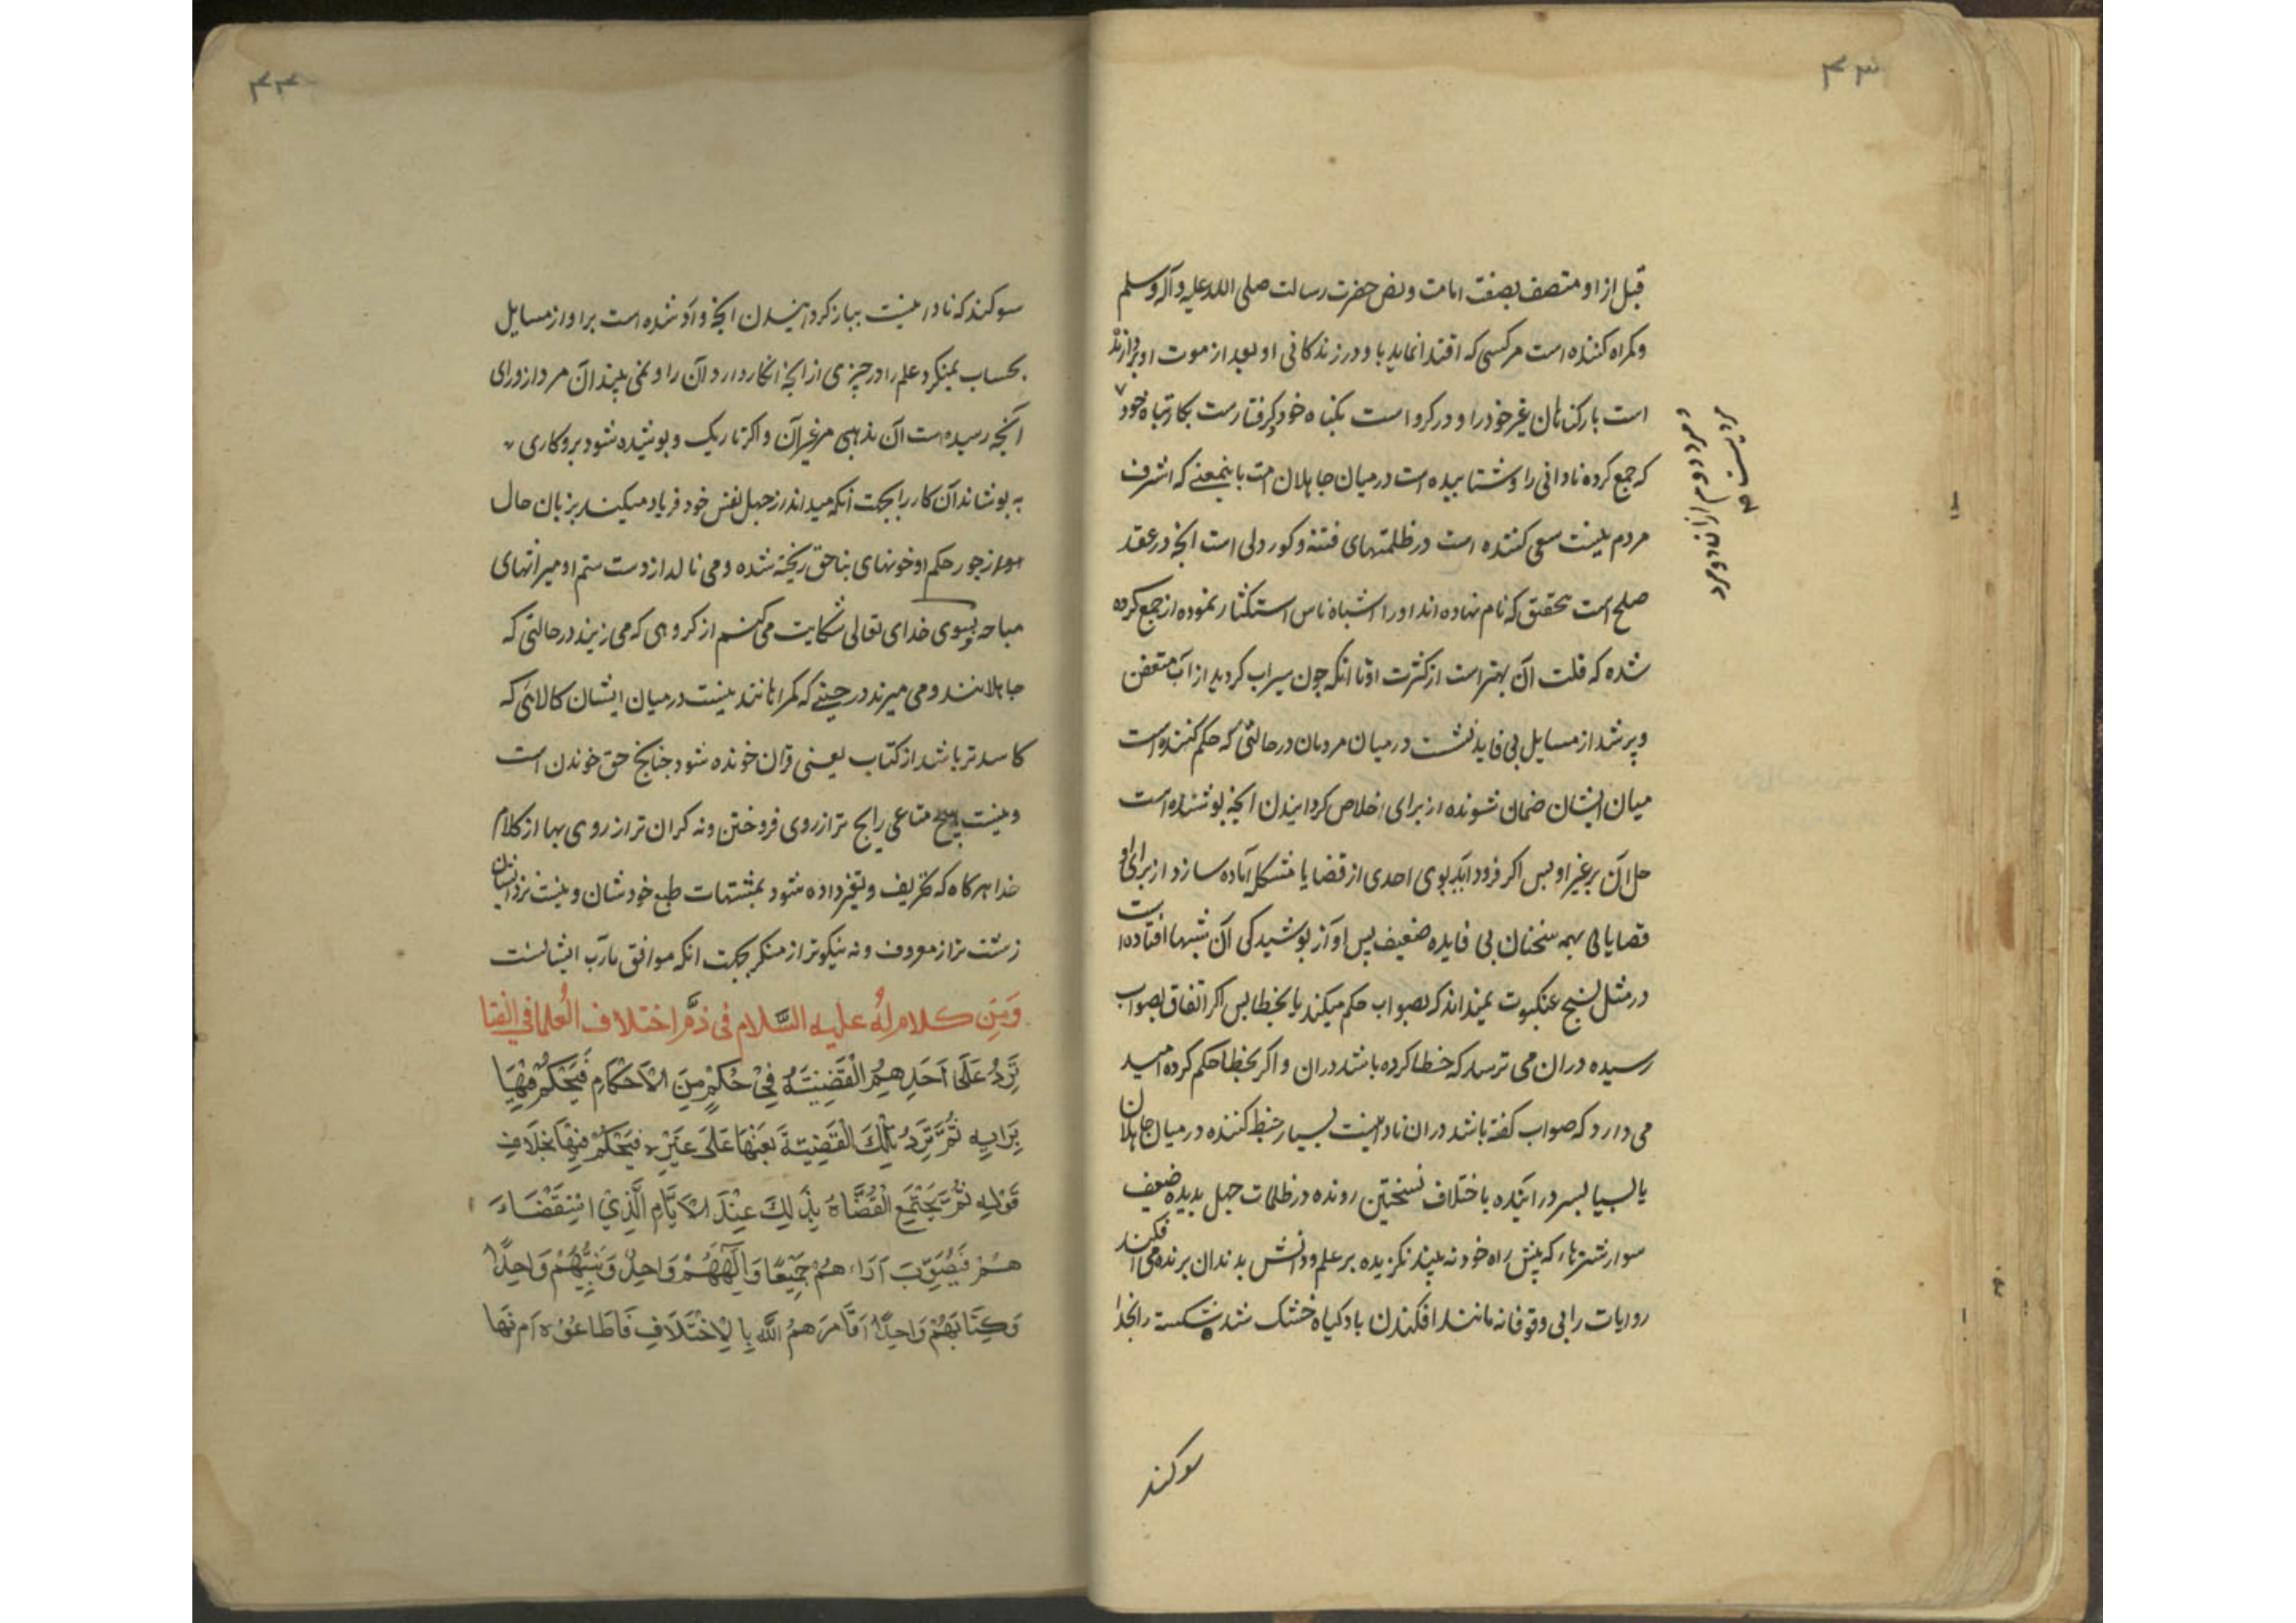 ۴۳
قبل از او متصف بصفت امامت و نص حضرت رسالت صلی الله علیه وآله وسلم
و کمراه کننده است مر کسی که اقتدا نماید با و در زندکانی او و بعد از موت او بردارنده
است بار کناهان غیر خود را و در کرو است بکناه خود کرفتارست بکار تباه خود
و مرد دوم از ان دو مرد
مردیست
که جمع کرده نادانی را و شتابیده است در میان جاهلان امت باینمعنی که اشرف
مردم نیست سعی کننده است در ظلمتهای فتنه و کور دلی است انچه در عقد
صلح است بتحقیق که نام نهاده اند او را اشباه ناس استکثار نموده از جمع کرده
شده که قلت آن بهتر است از کثرت او تا انکه چون سیراب کردید از آب متعفن
و پر شد از مسایل بی فایده نشست در میان مردمان در حالتی که حکم کننده است
میان ایشان ضمان شونده از برای خلاص کردانیدن انچه پوشنده است
حل آن بر غیر او پس اکر فرود آید بوی احدی از قضایا مشکله آماده سازد از برای او
قضایای بهمه سخنان بی فایده ضعیف پس او از پوشیدکی آن شبها افتاده است
در مثل نسج عنکبوت نمیداند که بصواب حکم میکند یا بخطا پس اکر اتفاق بصواب
رسیده در ان می ترسد که خطا کرده باشد در ان و اکر بخطا حکم کرده امید
می دارد که صواب کفته باشد در ان نادانیست بسیار خبط کننده در میان جاهلان
یا بسیار بسر در اینده باختلاف نسختین رونده در ظلمات جهل بدیده ضعیف
سوار شترها که پیش راه خود نه بیند نکزیده بر علم و دانش بدندان برنده می افکند
روایات را بی وقوفانه مانند افکندن باد کیاه خشک شده شکسته را بخدا
سوکند
۴۴
سوکند که نادانیست بباز کردانیدن انچه وارد شده است برا و از مسایل
بحساب نمیکرد علم را در چیزی از انچه انکار دارد آن را و نمی بیند آن مرد از ورای
آنچه رسیده است آن مذهبی مر غیر آن و اکر تاریک و پوشیده شود برو کاری
به پوشاند آن کار را بجهت انکه میداند از جهل نفس خود فریاد میکند بزبان حال
از جور حکم او خونهای بناحق ریخته شده و می نالد از دست ستم او میراثهای
مباحه بسوی خدای تعالی شکایت می کنم از کروهی که می زیند در حالتی که
جاهلانند و می میرند در حینی که کمراهانند نیست در میان ایشان کالائی که
کاسد تر باشد از کتاب یعنی قران خونده شود چنانچ حق خوندن است
و نیست هیچ متاعی رایج تر از روی فروختن و نه کران تر از روی بها از کلام
خدا هرکاه که تحریف و تغیر داده شود بمشتهات طبع خودشان و نیست نزد ایشان
زشت تر از معروف و نه نیکوتر از منکر بجهت انکه موافق مارب ایشانست
وَمِن کلام لهُ علیه السَّلام فی ذمّ اختلاف العُلما فی الفتیا
تَرِدُ عَلَى اَحَدِهِمُ الْقَضِیَّهُ فِی حُکْمٍ مِنَ الاَحْکَامِ فَیَحْکُمُ فِیْهَا
بِرَایِهِ ثُمَّ تَرِدُ تِلْکَ الْقَضِیَّةَ بِعَیْنِهَا عَلَی غَیْرِهِ فَیَحْکُمُ فِیْهَا بِخِلَافِ
قَوْلِهِ ثُمَّ یَجْتَمِعُ الْقُضَّاةُ بِذَلِکَ عِنْدَ الاِمَامِ الَّذِیْ اسْتَقْضَاءَ
هُمْ فَیُصَوِّبُ آرَاءَ هُمْ جَمِیْعًا وَاِلَهُهُمْ وَاحِدٌ وَنَبِیُّهُمْ وَاحِدٌ
وَکِتَابُهُمْ وَاحِدٌ اَفَاَمَرَهُمُ اللّٰهُ بِالْاِخْتِلَافِ فَاَطَاعُوْهُ اَمْ نَهَا